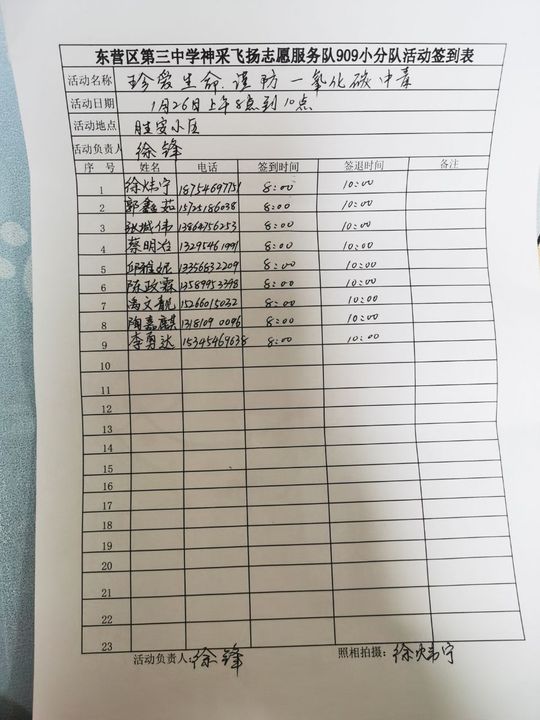 东营区第三中学神采飞扬志愿服务队909小分队活动签到表
活动名称 珍爱生命.谨防一氧化碳中毒
活动日期 1月26日上午8点到10点
活动地点 胜安小区
活动负责人 徐锋
序号 姓名 电话 签到时间 签退时间 备注
1 徐炜宁 18754697751 8:00 10:00
2 郭鑫茹 15725186038 8:00 10:00
3 张城伟 13864756253 8:00 10:00
4 蔡明冶 13295461991 8:00 10:00
5 邱雅妮 13356832209 8:00 10:00
6 陈政霖 13589953398 8:00 10:00
7 冯文靓 15266015032 8:00 10:00
8 陶嘉麒 13181090096 8:00 10:00
9 李勇达 15345469638 8:00 10:00
10
11
12
13
14
15
16
17
18
19
20
21
22
23
活动负责人:徐锋 照相拍摄:徐炜宁